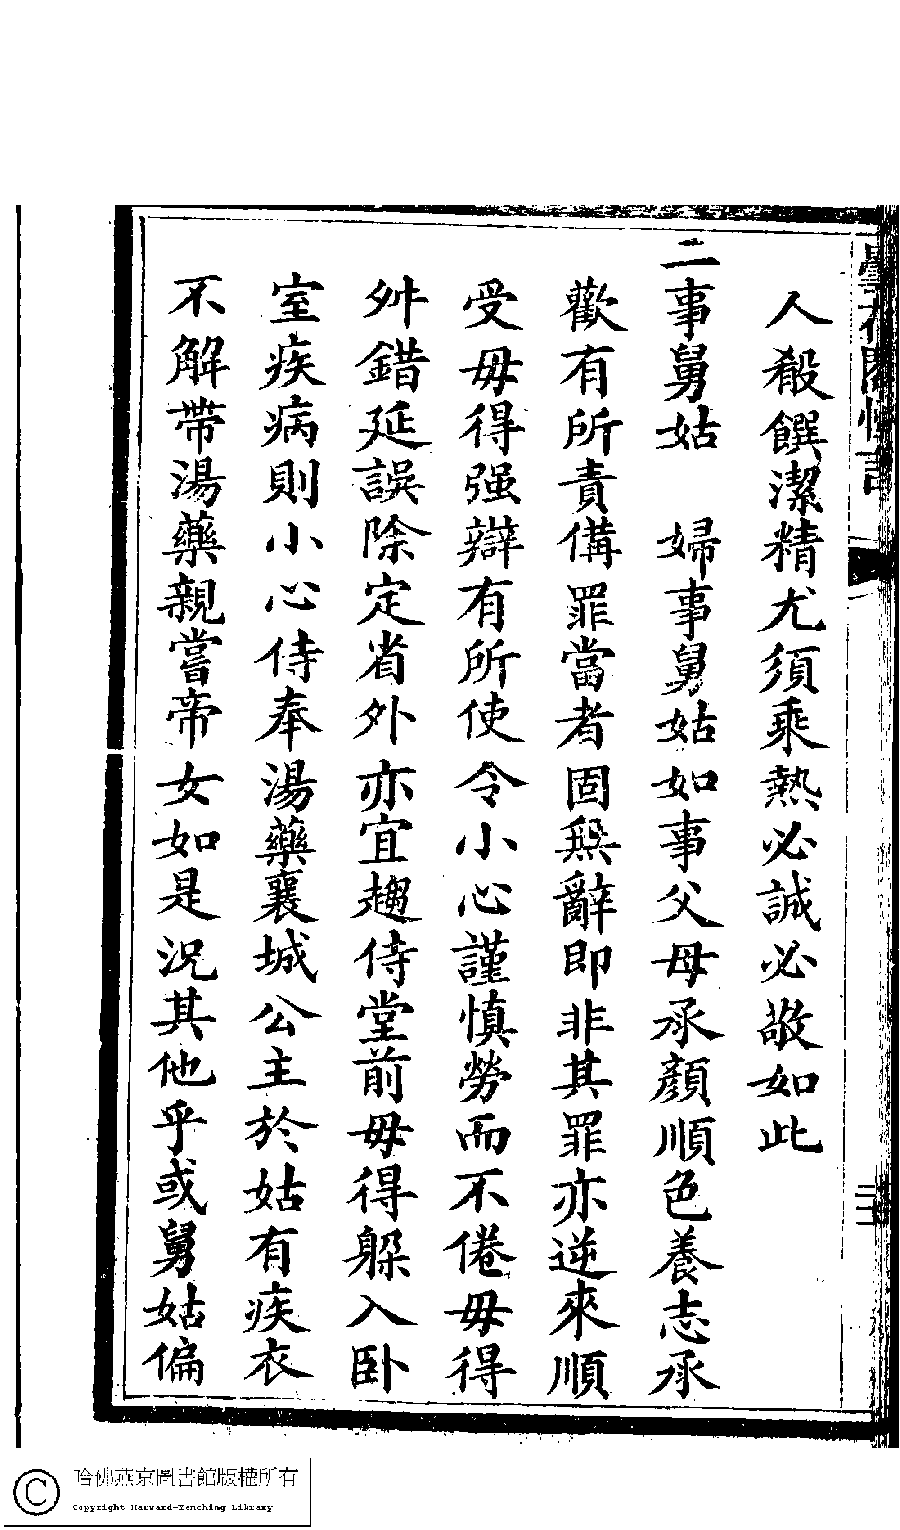 曇花閣
人殽饌潔精尤須乘熱必誠必敬如此
二事舅姑　婦事舅姑如事父母承顏順色養志承
歡有所責備罪當者固無辭即非其罪亦逆來順
受毋得强辯有所使令小心謹慎勞而不倦毋得
舛錯延誤除定省外亦宜趨侍堂前毋得躱入卧
室疾病則小心侍奉湯藥襄城公主於姑有疾衣
不解帶湯藥親嘗帝女如是況其他乎或舅姑偏
哈佛燕京圖書館版權所有
Copyright Harvard-Yenching Library